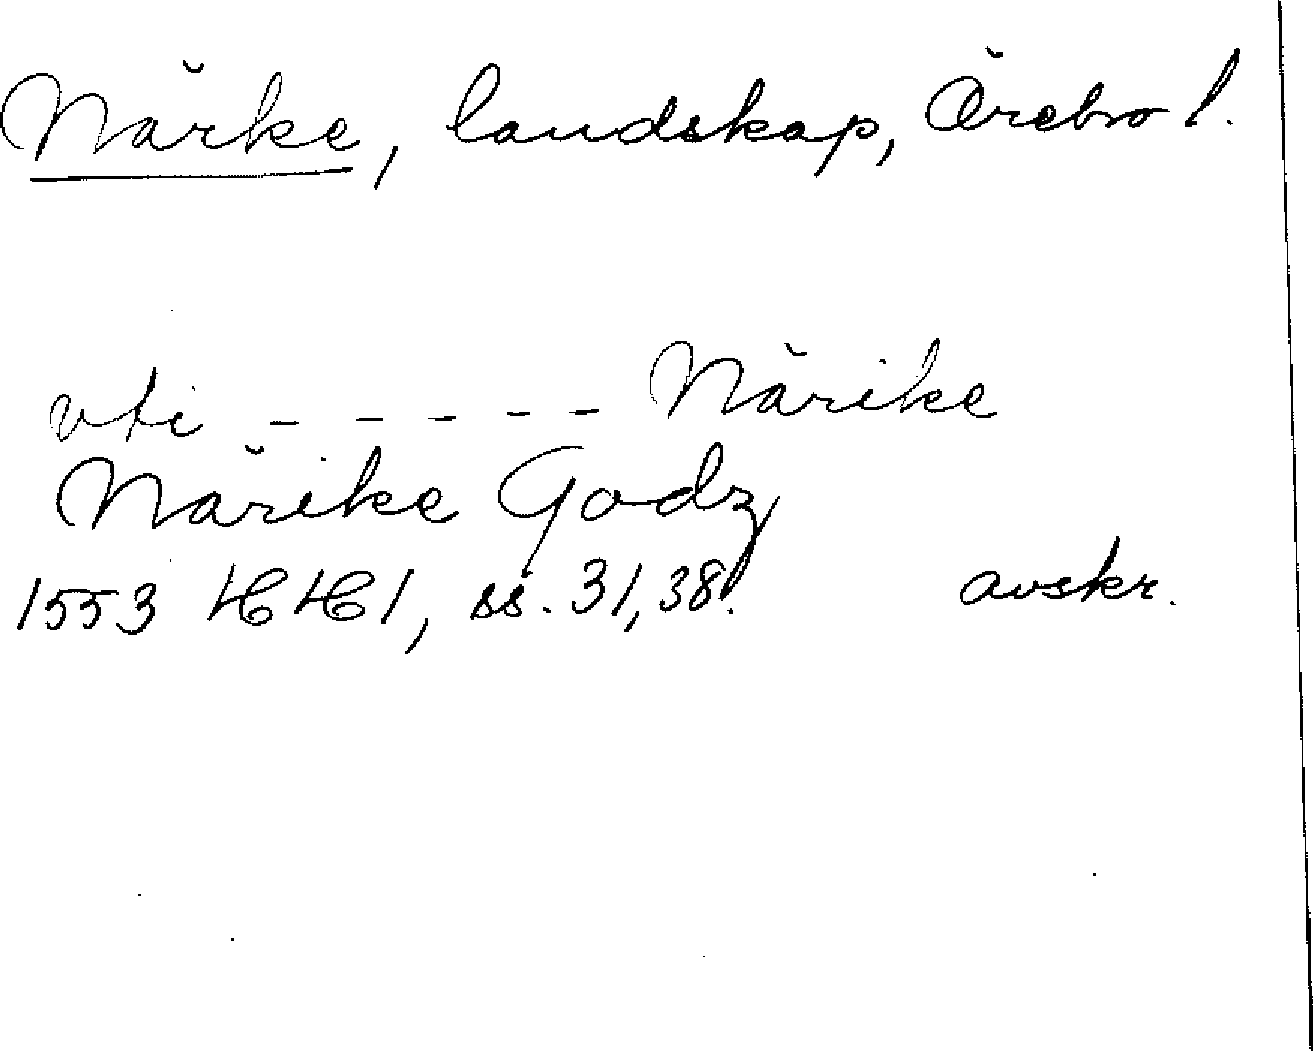 Närke, landskap, Örebro l.
vti - - - - - Närike
Närike Godz
1553 HH 1, ss. 31, 38. avskr.